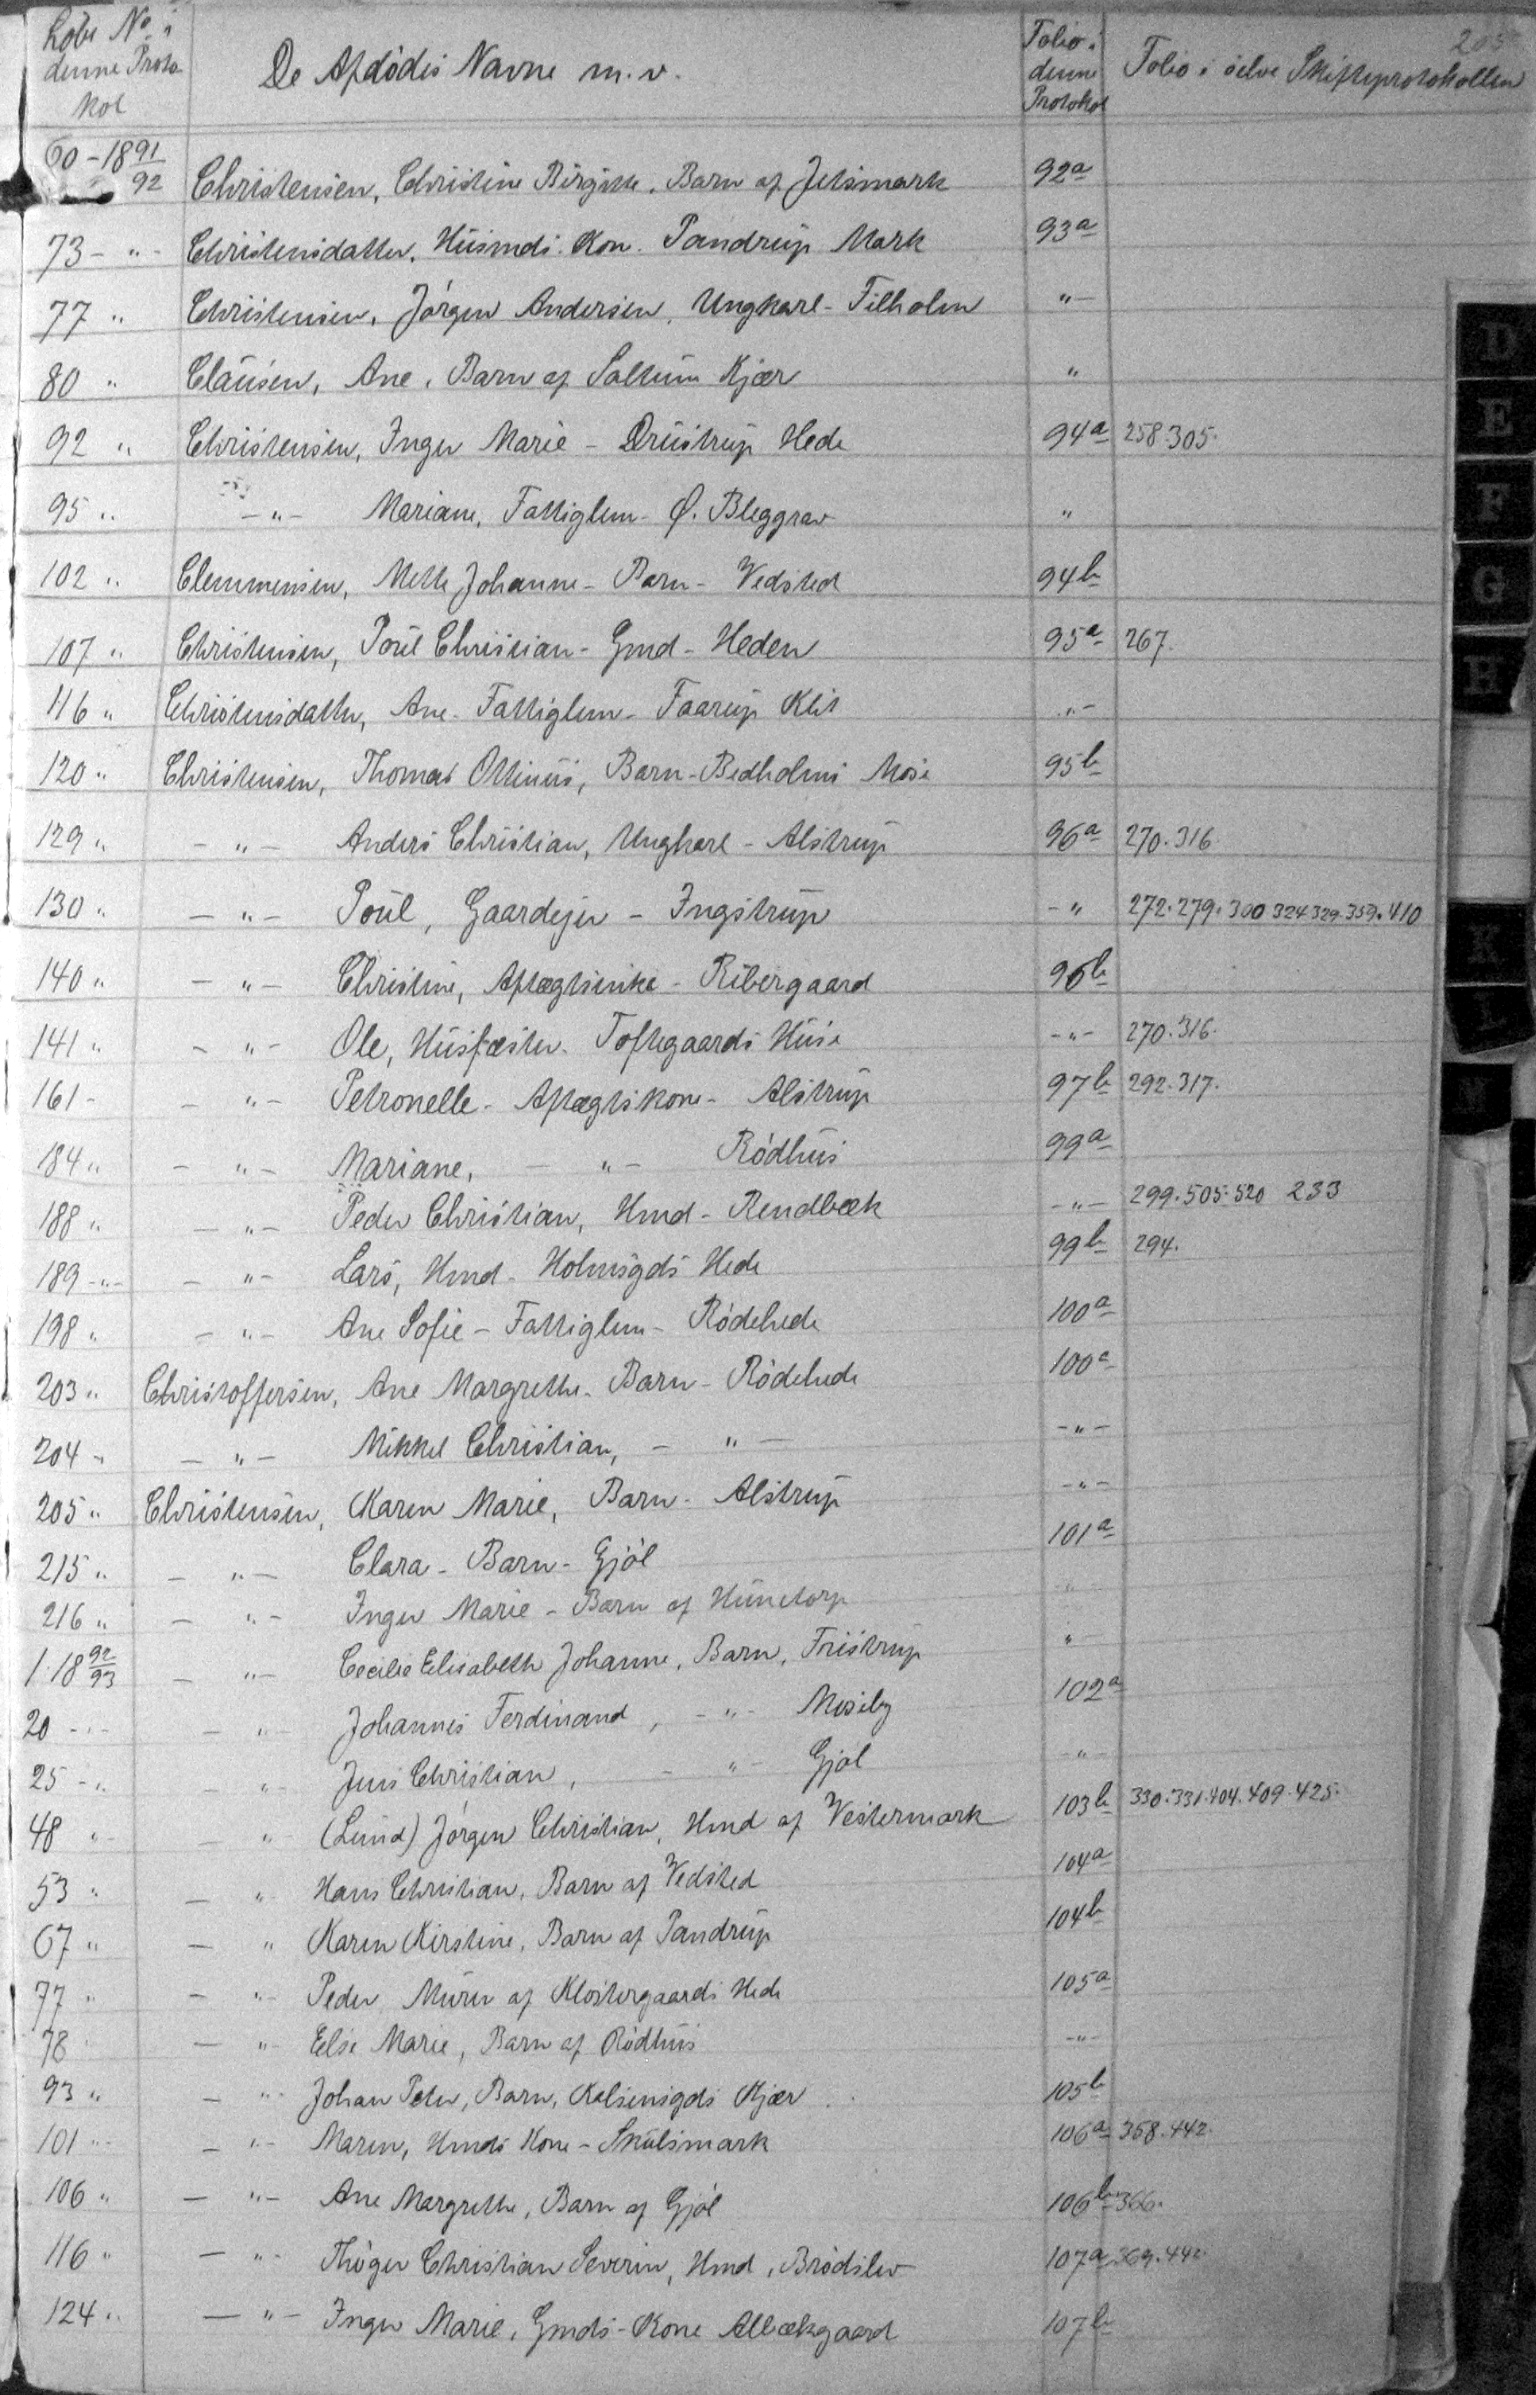 Løbe No i denne Protokol | De Afdødes Navne m.v. | Folio i denne Protokol | Folio i selve Skifteprotokollen
60 - 1891/92 Christensen, Christine Birgitte. Barn af Jetsmark 92a
73 - " - Christensdatter. Husmds. Kon. Pandrup Mark 93a
77 " Christensen, Jörgen Andersen, Ungkarl - Filholm " -
80 " Clausen, Ane. Barn af Saltum Kjær "
92 " Christensen, Inger Marie - Drustrup Hede 94a 258.305.
95 " - " - Mariane, Fattiglem - Ø. Bleggrav "
102 " Clemmensen, Mette Johanne - Barn - Vedsted 94b
107 " Christensen, Poul Christian - Gmd - Heden 95a 267.
116 " Christensdatter, Ane - Fattiglem - Faarup Klit " -
120 " Christensen, Thomas Ottinus, Barn - Bedholms Mose 95b
129 " - " - Anders Christian, Ungkarl - Alstrup 96a 270.316.
130 " - " - Poul, Gaardejer - Ingstrup - " 272.279.300 324 329.359.410
140 " - " - Christine, Aftægtsenke - Ribergaard 96b
141 " - " - Ole, Husfæster. Toftegaards Huse - " - 270.316.
161 - - " - Petronelle - Aftægtskone - Alstrup 97b 292.317.
184 " - " - Mariane, - " - Rödhus 99a
188 " - " - Peder Christian, Hmd - Rendbæk - " - 299.505.520 233
189 - " - - " - Lars, Hmd - Holmsgds Hede 99b 294.
198 " - " - Ane Sofie - Fattiglem - Rödehede 100a
203 " Christoffersen, Ane Margrethe. Barn - Rödehede 100a
204 " - " - Mikkel Christian, - " - - " -
205 " Christensen, Karen Marie, Barn - Alstrup - " -
215 " - " - Clara - Barn - Gjöl 101a
216 " - " - Inger Marie - Barn af Hunetorp "
1. 1892/93 - " - Cecilie Elisabeth Johanne, Barn, Fristrup " -
20 - " - - " - Johannes Ferdinand, - " - Moseby 102a
25 - " - " - Jens Christian, - " - Gjöl - " -
48 " - - " (Lund) Jörgen Christian, Hmd af Vestermark 103b 330.331.404.409.425.
53 " - " Hans Christian, Barn af Vedsted 104a
67 " - " Karen Kirstine, Barn af Pandrup 104b
77 " - " - Peder Murer af Klostergaards Hede 105a
78 - " - Else Marie, Barn af Rödhus - " -
93 " - " - Johan Peter, Barn, Kalsensgds Kjær 105b
101 " - - " - Maren, Hmds Kone - Skulsmark 106a 358.442.
106 " - " - Ane Margrethe, Barn af Gjöl 106b 366.
116 " - " - Thöger Christian Severin, Hmd, Brödslev 107a 369.442.
124 " - " - Inger Marie, Gmds - Kone Albækgaard 107b
D
E
F
G
H
K
L
M